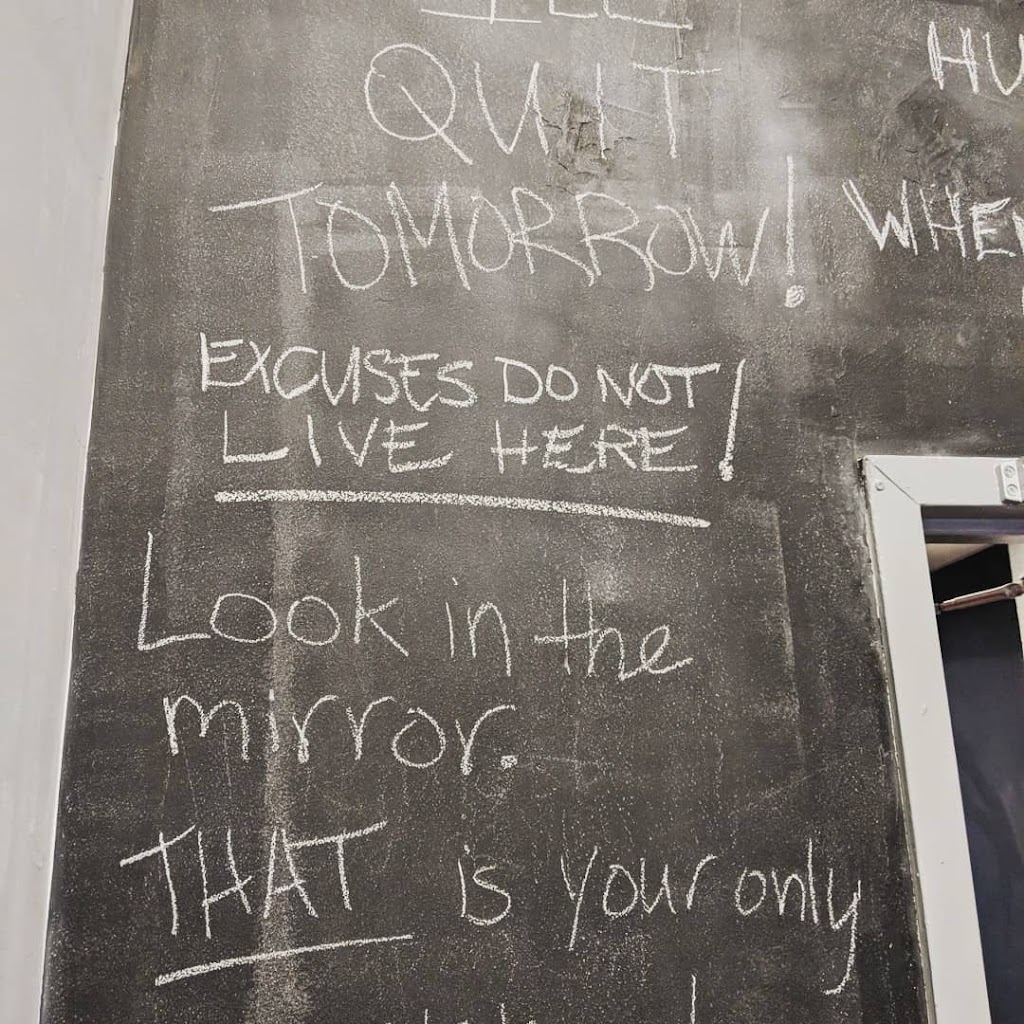 I'LL
QUIT
TOMORROW!
HU
WHEN
EXCUSES DO NOT
LIVE HERE!
Look in the
mirror.
THAT is your only